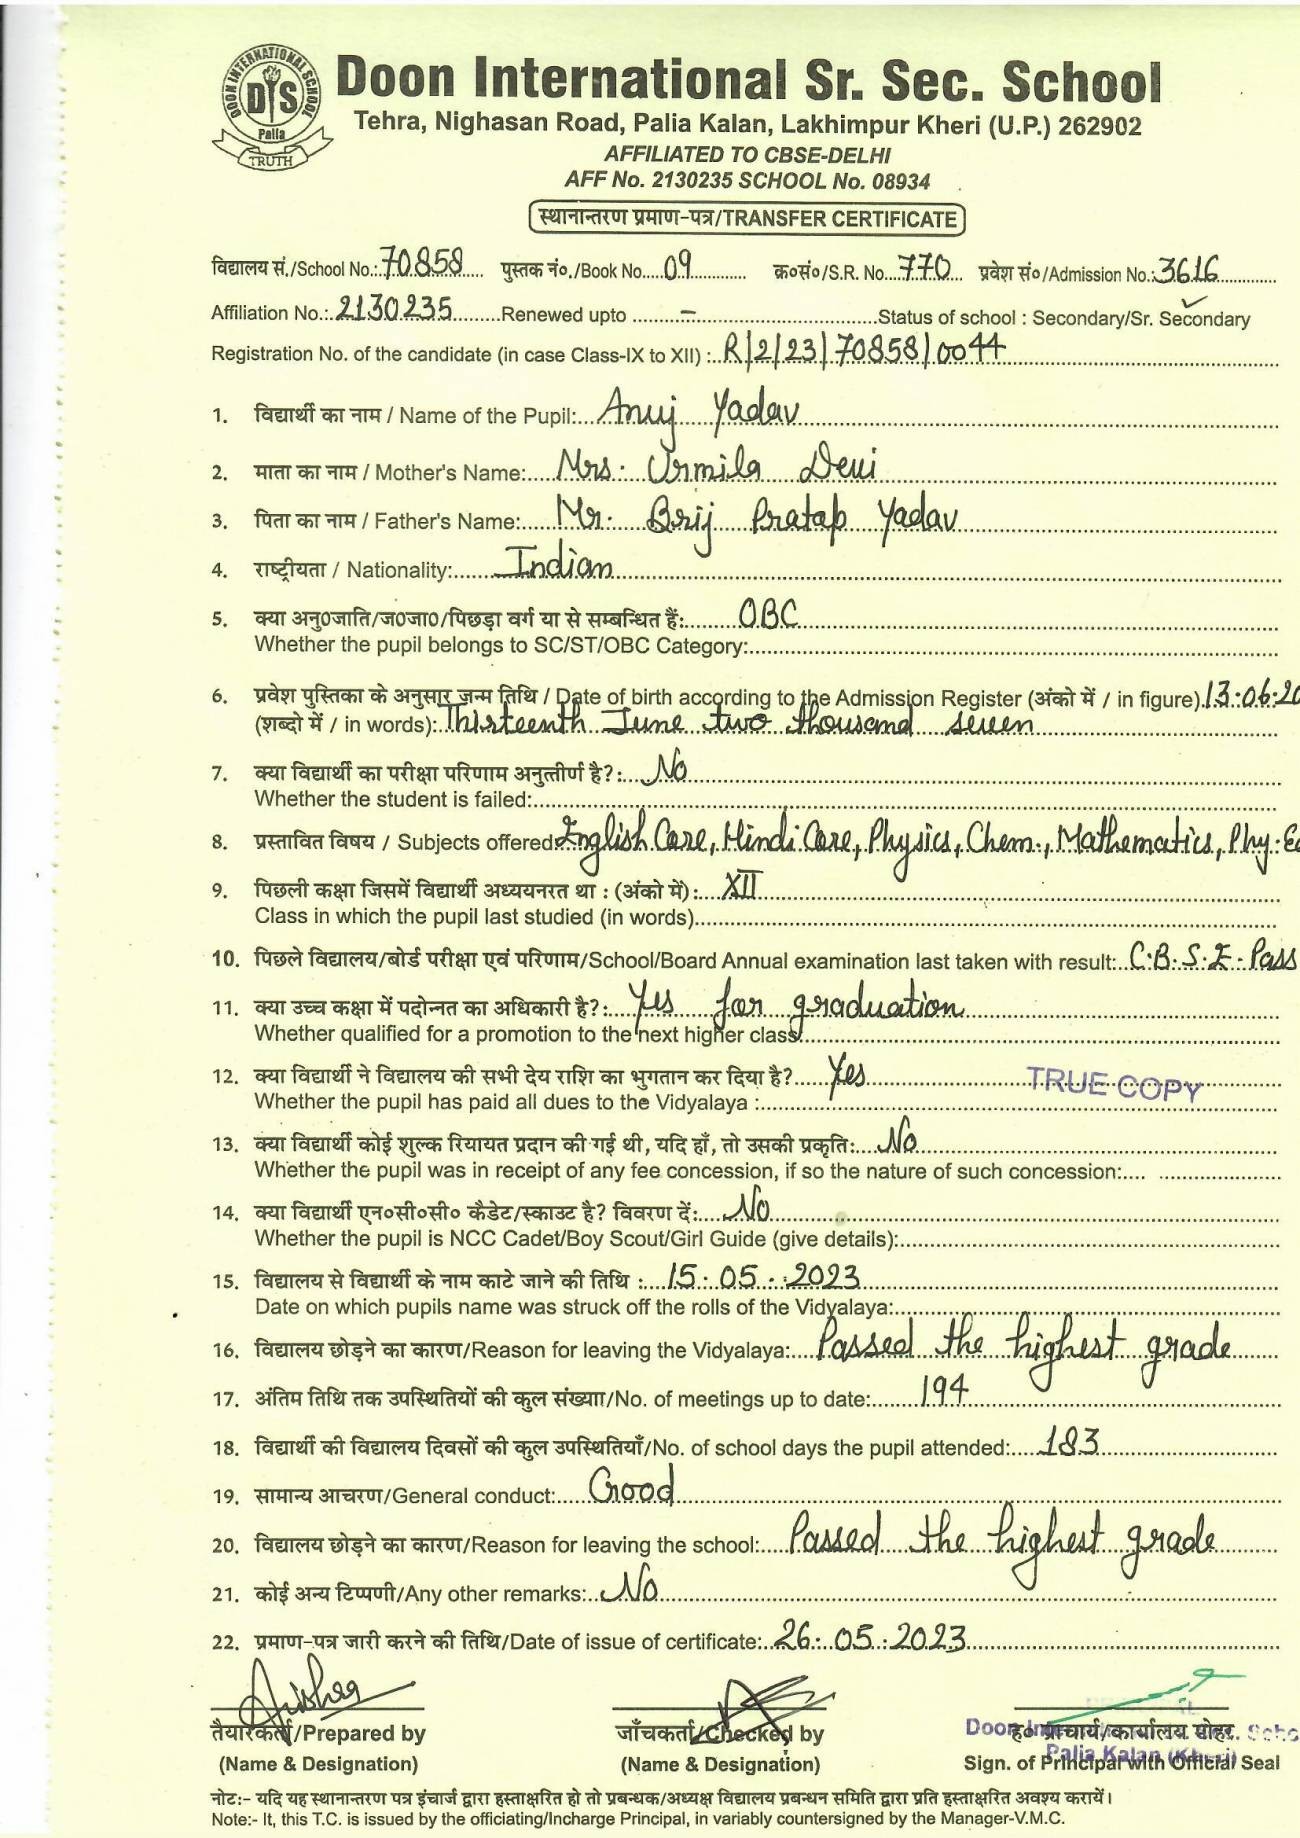 DOON INTERNATIONAL SCHOOL
DIS
Palia
TRUTH
Doon International Sr. Sec. School
Tehra, Nighasan Road, Palia Kalan, Lakhimpur Kheri (U.P.) 262902
AFFILIATED TO CBSE-DELHI
AFF No. 2130235 SCHOOL No. 08934
स्थानान्तरण प्रमाण-पत्र/TRANSFER CERTIFICATE
विद्यालय सं./School No.: 70858 पुस्तक नं०./Book No. 09 क्र०सं०/S.R. No. 770 प्रवेश सं०/Admission No.: 3616
Affiliation No.: 2130235 Renewed upto - Status of school : Secondary/Sr. Secondary ✓
Registration No. of the candidate (in case Class-IX to XII) : R/2/23/70858/0044
1. विद्यार्थी का नाम / Name of the Pupil: Anuj Yadav
2. माता का नाम / Mother's Name: Mrs. Urmila Devi
3. पिता का नाम / Father's Name: Mr. Brij Pratap Yadav
4. राष्ट्रीयता / Nationality: Indian
5. क्या अनु0जाति/ज0जा0/पिछड़ा वर्ग या से सम्बन्धित हैं: OBC
Whether the pupil belongs to SC/ST/OBC Category:
6. प्रवेश पुस्तिका के अनुसार जन्म तिथि / Date of birth according to the Admission Register (अंको में / in figure) 13.06.20
(शब्दो में / in words): Thirteenth June two thousand seven
7. क्या विद्यार्थी का परीक्षा परिणाम अनुत्तीर्ण है?: No
Whether the student is failed:
8. प्रस्तावित विषय / Subjects offered: English Core, Hindi Core, Physics, Chem., Mathematics, Phy. Ed
9. पिछली कक्षा जिसमें विद्यार्थी अध्ययनरत था : (अंको में): XII
Class in which the pupil last studied (in words)
10. पिछले विद्यालय/बोर्ड परीक्षा एवं परिणाम/School/Board Annual examination last taken with result: C.B.S.E. Pass
11. क्या उच्च कक्षा में पदोन्नत का अधिकारी है?: Yes for graduation
Whether qualified for a promotion to the next higher class:
12. क्या विद्यार्थी ने विद्यालय की सभी देय राशि का भुगतान कर दिया है? Yes
TRUE COPY
Whether the pupil has paid all dues to the Vidyalaya :
13. क्या विद्यार्थी कोई शुल्क रियायत प्रदान की गई थी, यदि हाँ, तो उसकी प्रकृति: No
Whether the pupil was in receipt of any fee concession, if so the nature of such concession:
14. क्या विद्यार्थी एन०सी०सी० कैडेट/स्काउट है? विवरण दें: No
Whether the pupil is NCC Cadet/Boy Scout/Girl Guide (give details):
15. विद्यालय से विद्यार्थी के नाम काटे जाने की तिथि : 15.05.2023
Date on which pupils name was struck off the rolls of the Vidyalaya:
16. विद्यालय छोड़ने का कारण/Reason for leaving the Vidyalaya: Passed the highest grade
17. अंतिम तिथि तक उपस्थितियों की कुल संख्या/No. of meetings up to date: 194
18. विद्यार्थी की विद्यालय दिवसों की कुल उपस्थितियाँ/No. of school days the pupil attended: 183
19. सामान्य आचरण/General conduct: Good
20. विद्यालय छोड़ने का कारण/Reason for leaving the school: Passed the highest grade
21. कोई अन्य टिप्पणी/Any other remarks: No
22. प्रमाण-पत्र जारी करने की तिथि/Date of issue of certificate: 26.05.2023
तैयारकर्ता/Prepared by जाँचकर्ता/Checked by ह० प्राचार्य/कार्यालय मोहर
(Name & Designation) (Name & Designation) Sign. of Principal with Official Seal
PRINCIPAL
Doon Sec. Scho
Palia Kalan (Kheri)
नोट:- यदि यह स्थानान्तरण पत्र इंचार्ज द्वारा हस्ताक्षरित हो तो प्रबन्धक/अध्यक्ष विद्यालय प्रबन्धन समिति द्वारा प्रति हस्ताक्षरित अवश्य करायें।
Note:- It, this T.C. is issued by the officiating/Incharge Principal, in variably countersigned by the Manager-V.M.C.